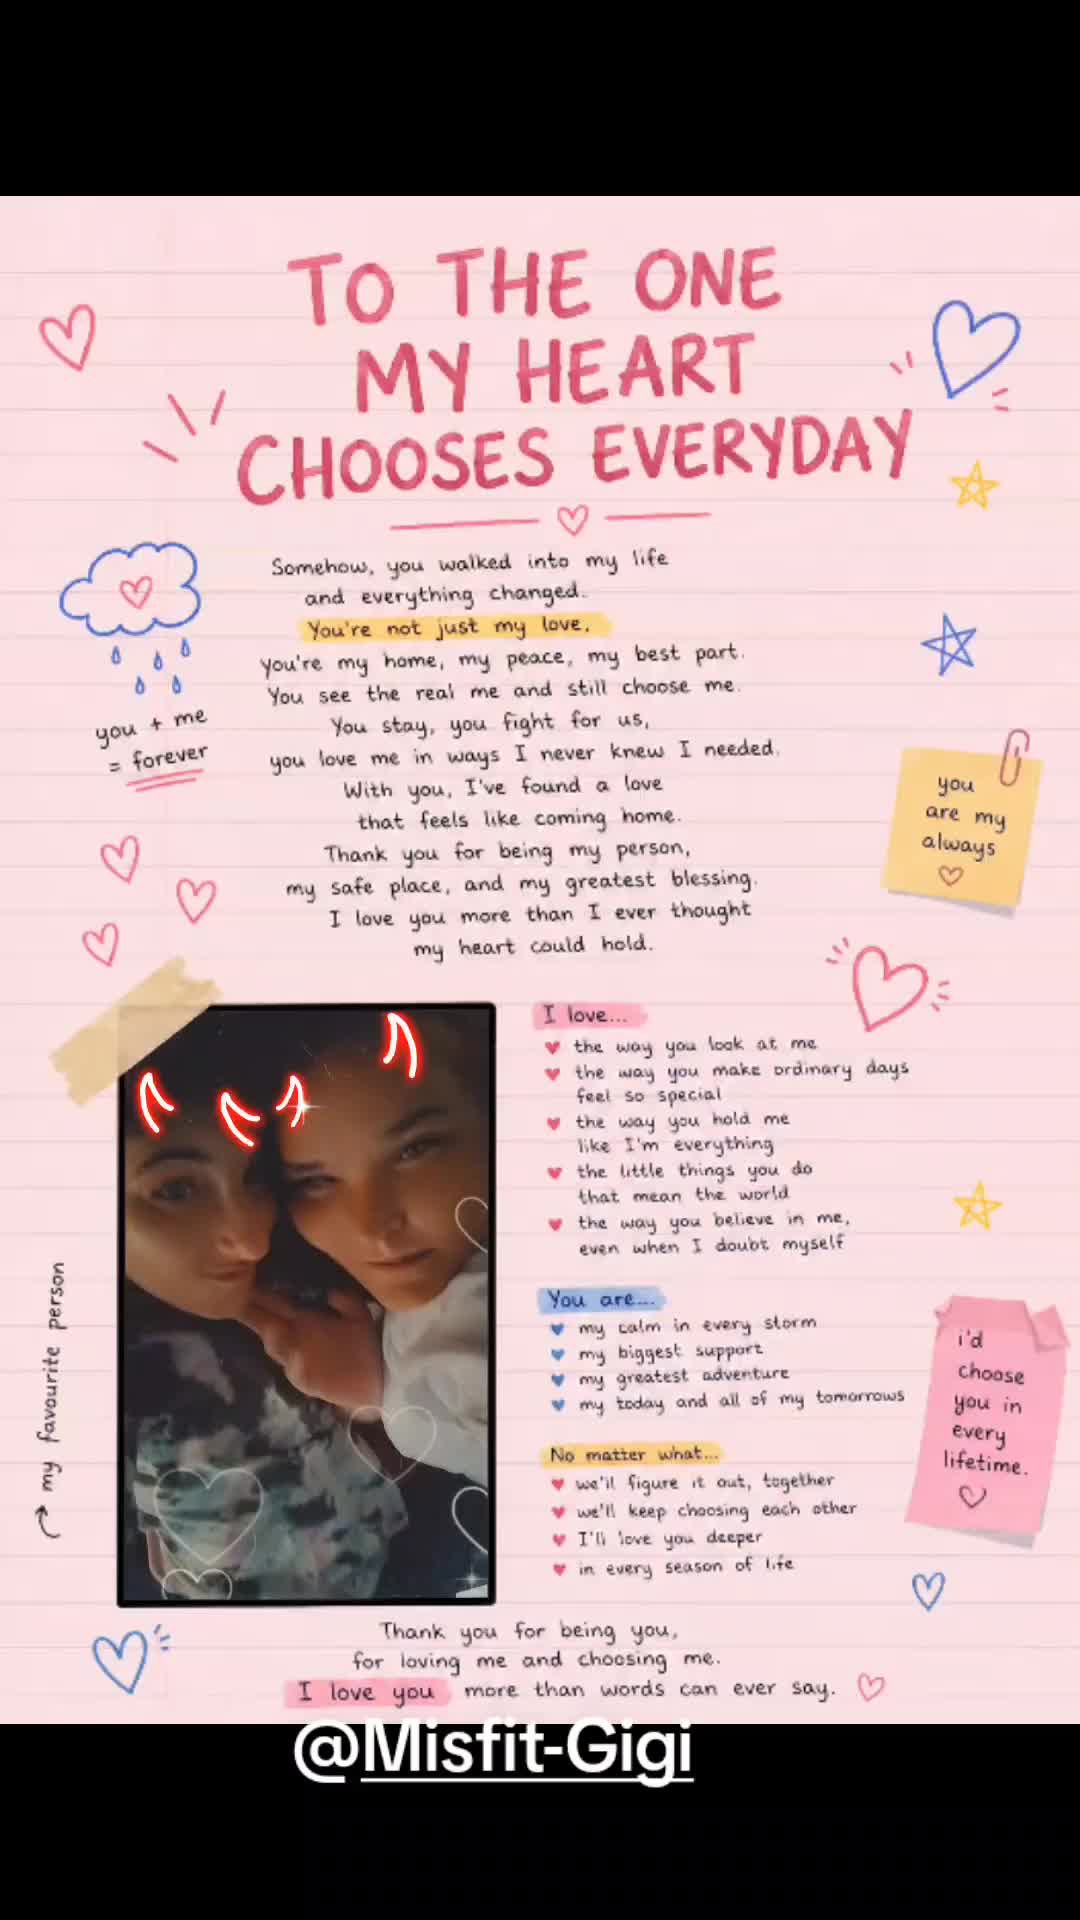 TO THE ONE
MY HEART
CHOOSES EVERYDAY
Somehow, you walked into my life
and everything changed.
You're not just my love,
You're my home, my peace, my best part.
You see the real me and still choose me.
You stay, you fight for us,
you love me in ways I never knew I needed.
With you, I've found a love
that feels like coming home.
Thank you for being my person,
my safe place, and my greatest blessing.
I love you more than I ever thought
my heart could hold.
you + me
= forever
you
are my
always
my favourite person
I love...
the way you look at me
the way you make ordinary days
feel so special
the way you hold me
like I'm everything
the little things you do
that mean the world
the way you believe in me,
even when I doubt myself
You are...
my calm in every storm
my biggest support
my greatest adventure
my today and all of my tomorrows
No matter what...
we'll figure it out, together
we'll keep choosing each other
I'll love you deeper
in every season of life
i'd
choose
you in
every
lifetime.
Thank you for being you,
for loving me and choosing me.
I love you more than words can ever say.
@Misfit-Gigi